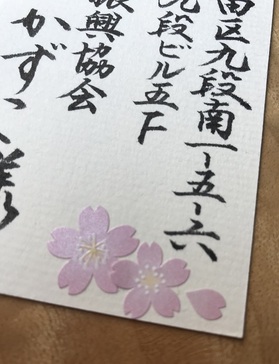 田区九段南一-五-六
九段ビル五F
振興協会
かず